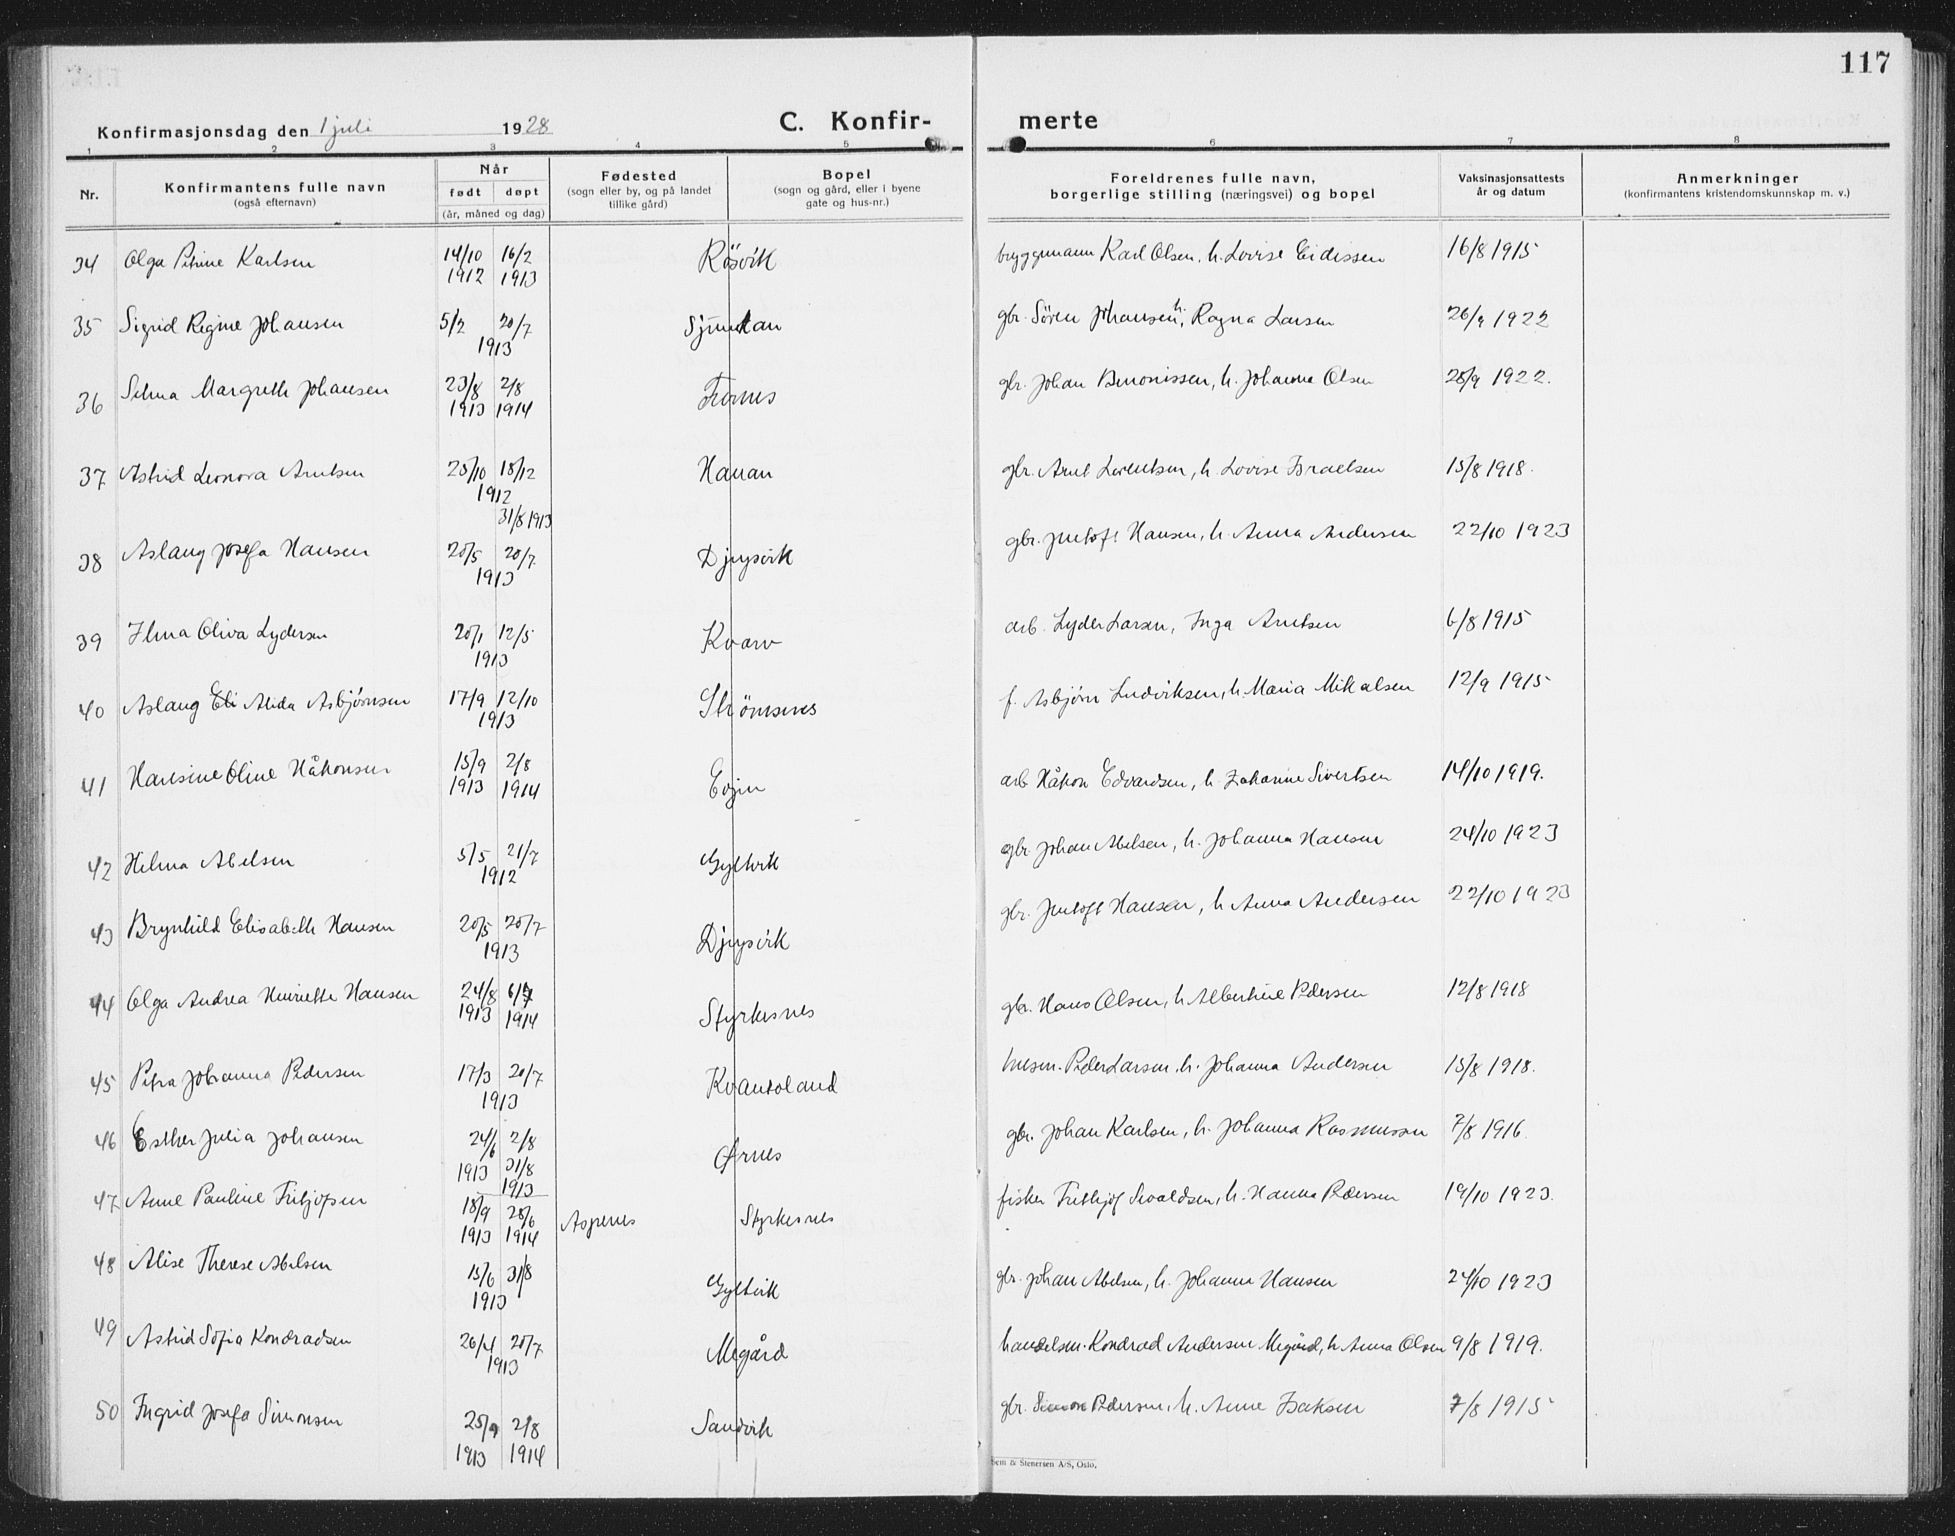 117
Konfirmasjonsdag den 1 juli 1928
C. Konfir-
merte
1 2 3 4 5 6 7 8
Nr.
Konfirmantens fulle navn
(også efternavn)
Når
født døpt
(år, måned og dag)
Fødested
(sogn eller by, og på landet
tillike gård)
Bopel
(sogn og gård, eller i byene
gate og hus-nr.)
Foreldrenes fulle navn,
borgerlige stilling (næringsvei) og bopel
Vaksinasjonsattests
år og datum
Anmerkninger
(konfirmantens kristendomskunnskap m. v.)
34 Olga Petrine Karlsen 14/10 1912 16/2 1913 Røsvik bryggemann Karl Olsen, h. Lovise Eidissen 16/8 1915
35 Sigrid Regine Johansen 5/2 20/7 1913 gbr. Søren Johansen, h. Ragna Larsen 26/9 1922
36 Selma Margreth Johansen 23/8 1913 2/8 1914 Fornes gbr. Johan Benonissen, h. Johanna Olsen 28/9 1922.
37 Astrid Leonora Arntsen 25/10 18/12 1912 Hanan gbr. Arnt Lorentsen, h. Lovise Israelsen 15/8 1918.
31/8 1913
38 Aslaug Josefa Hansen 20/5 20/7 1913 Djupvik gbr. Jentoft Hansen, h. Anna Andersen 22/10 1923
39 Ilma Oliva Lydersen 20/1 12/5 1913 Kvarv arb. Lyder Larsen, Inga Arntsen 6/8 1915
40 Aslaug Eli Alida Asbjørnsen 17/9 12/10 1913 Strømsnes f. Asbjørn Ludviksen, h. Maria Mikalsen 12/9 1915
41 Hansine Oline Håkonsen 15/9 1913 2/8 1914 Evjen arb Håkon Edvardsen, h. Zakarine Sivertsen 14/10 1919.
42 Helma Abelsen 5/5 21/7 1912 Gyltvik gbr. Johan Abelsen, h. Johanna Hansen 24/10 1923
43 Brynhild Elisabeth Hansen 20/5 20/7 1913 Djupvik gbr. Jentoft Hansen, h Anna Andersen 22/10 1923
44 Olga Andrea Henriette Hansen 24/8 1913 1914 Styrkesnes gbr. Hans Olsen, h Albertine Pedersen 12/8 1918
45 Petra Johanna Pedersen 17/3 20/7 1913 Kvantoland husm. Peder Larsen, h. Johanna Andersen 15/8 1918.
46 Esther Julia Johansen 24/6 1913 2/8 31/8 1913 Ørnes gbr. Johan Karlsen, h. Johanna Rasmussen 7/8 1916.
47 Anne Pauline Fritjofsen 18/9 1913 28/6 1914 Aspenes Styrkesnes fisker Frithjof Sivaldsen, h. Hanna Pedersen 19/10 1923.
48 Alise Therese Abelsen 15/6 31/8 1913 Gyltvik gbr. Johan Abelsen, h. Johanna Hansen 24/10 1923
49 Astrid Sofia Kondradsen 26/4 20/7 1913 Megård handelsm. Kondrad Andersen Megård, h Anna Olsen 9/8 1919.
50 Ingrid Josefa Simonsen 25/9 1913 2/8 1914 Sandvik gbr. Simon Pedersen, h. Anne Isaksen 7/8 1915
Sem & Stenersen A/S, Oslo.